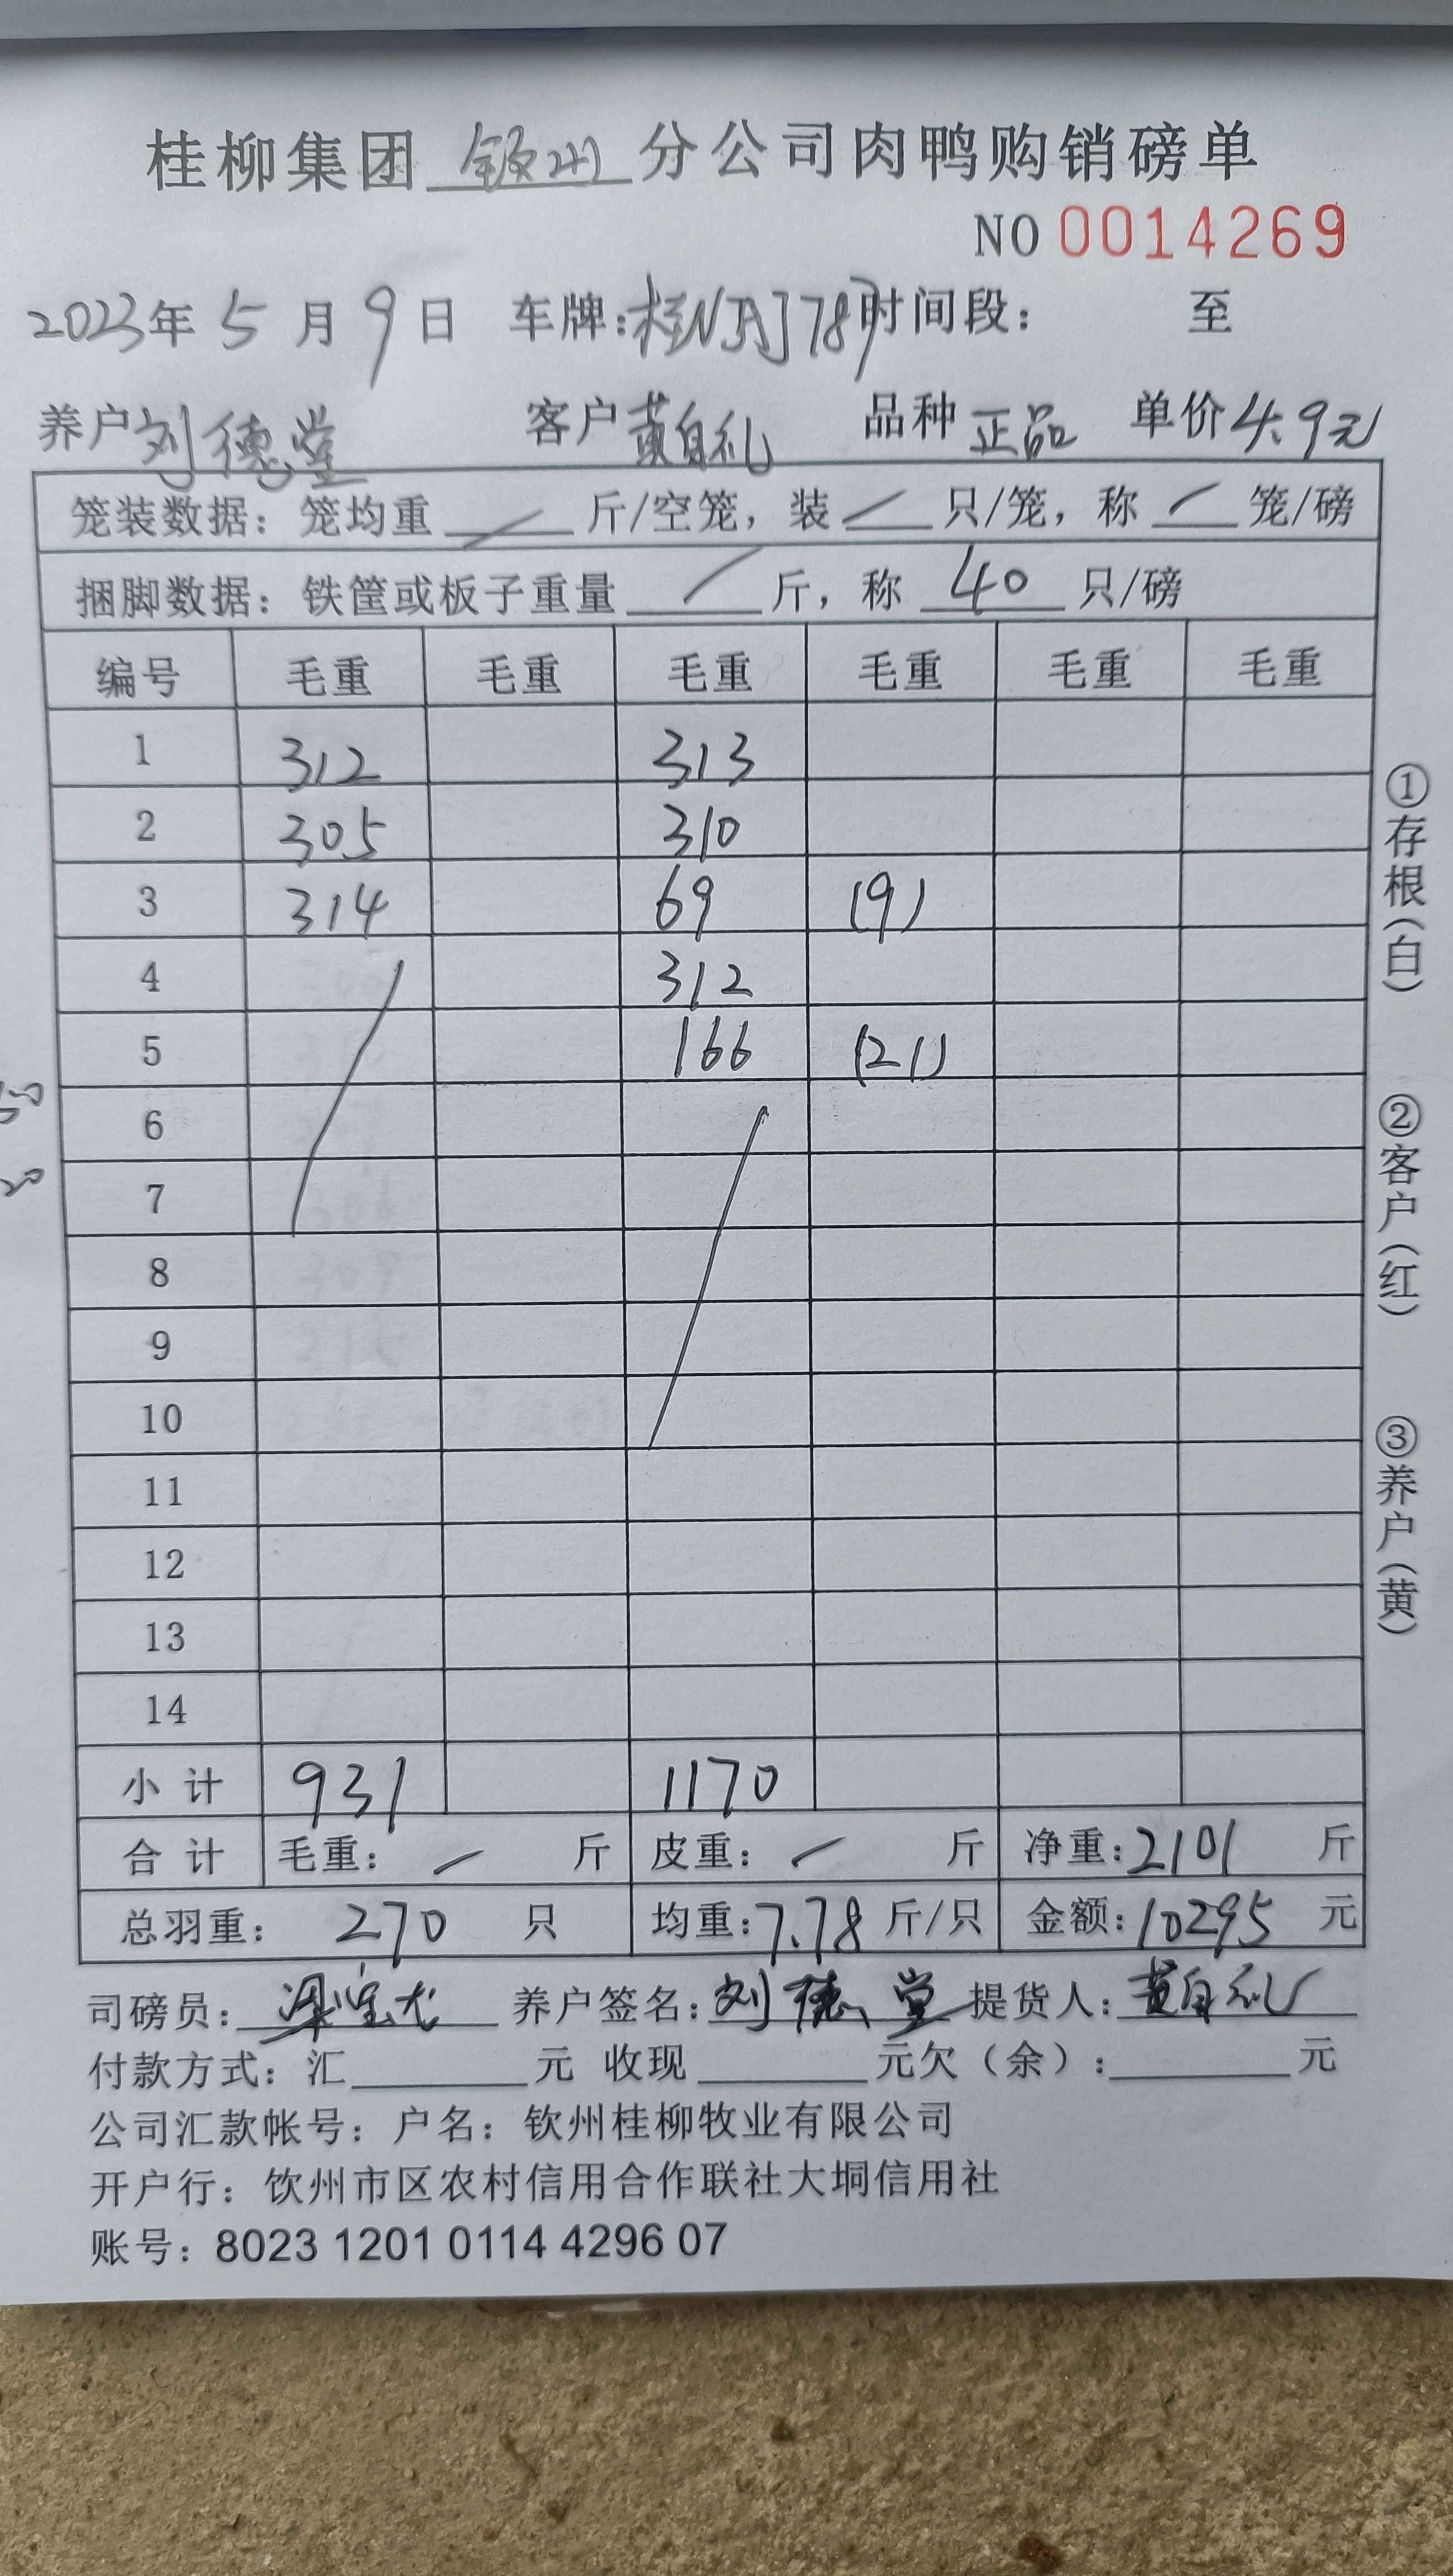 桂柳集团 钦州 分公司肉鸭购销磅单
NO 0014269
2023年 5 月 9 日 车牌:桂NJAJ789 时间段: 至
养户 刘德堂 客户 黄自礼 品种 正品 单价 4.9元
笼装数据: 笼均重 / 斤/空笼, 装 / 只/笼, 称 / 笼/磅
捆脚数据: 铁筐或板子重量 / 斤, 称 40 只/磅
编号 毛重 毛重 毛重 毛重 毛重 毛重
1 312 313
2 305 310
3 314 69 (9)
4 312
5 166 (21)
6
7
8
9
10
11
12
13
14
小计 931 1170
合计 毛重: / 斤 皮重: / 斤 净重:2101 斤
总羽重: 270 只 均重:7.78 斤/只 金额:10295 元
司磅员: 养户签名:刘德堂 提货人:黄自礼
付款方式: 汇 元 收现 元欠(余): 元
公司汇款帐号: 户名: 钦州桂柳牧业有限公司
开户行: 饮州市区农村信用合作联社大垌信用社
账号: 8023 1201 0114 4296 07
①存根(白)
②客户(红)
③养户(黄)